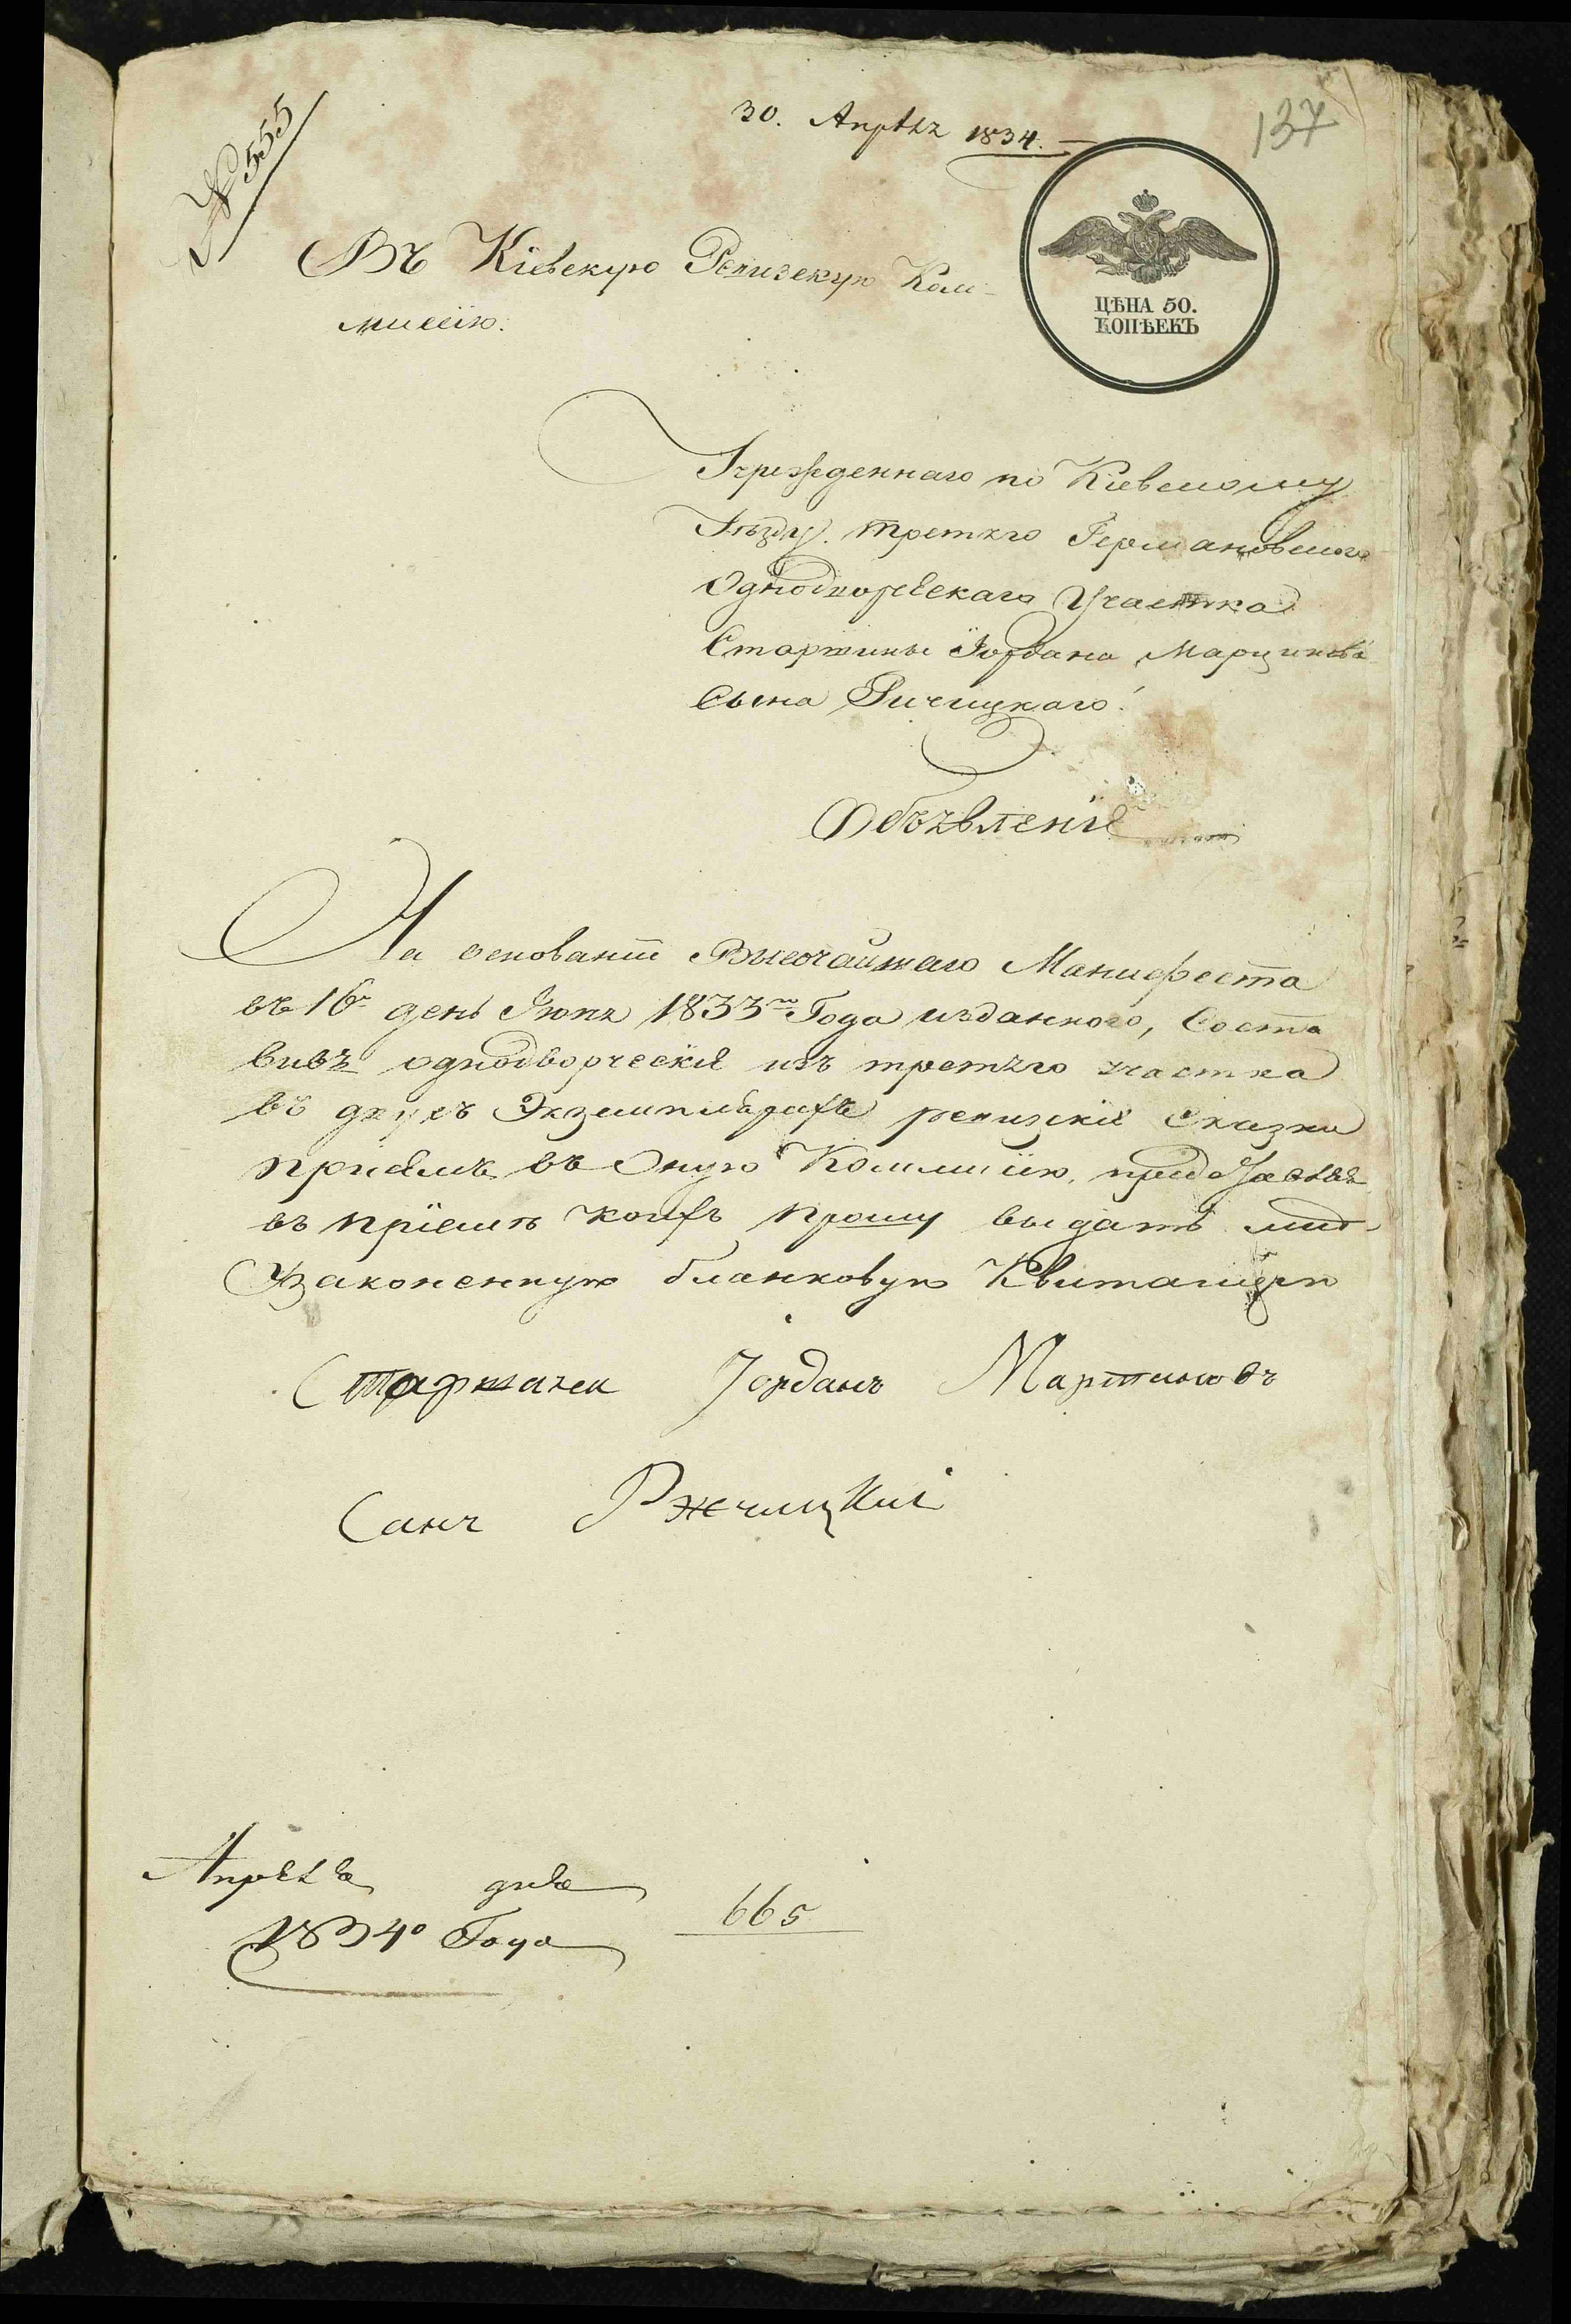 № 555
30. Апрѣля 1834.
137
Въ Кіевскую Ревизскую Ком-
миссію.
ЦѢНА 50.
КОПѢЕКЪ
Учрежденнаго по Кіевскому
Уѣзду. третяго Германовского
Однодворческаго Участка
Старшины Іордана Марцинова
Сына Ричицкаго.
Объявленіе
На основаніи Высочайшаго Манифеста
въ 16й день Іюня 1833го Года изданного, Соста
вивъ однодворческія изъ третяго участка
въ двухъ Экземплярахъ ревизскія Сказки
въ Оную Коммисію,
въ пріемѣ коихъ прошу выдать мнѣ
Узаконенную бланковую Квитанцію
Старшина Іорданъ Мартиновъ
Санъ Ржчицкій
Апрѣля дня
1834о Года
665